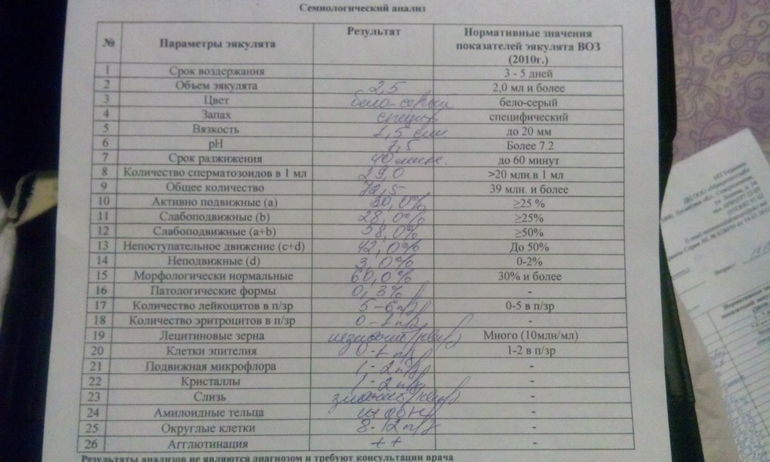 Семиологический анализ
№ Параметры эякулята Результат Нормативные значения показателей эякулята ВОЗ (2010г.)
1 Срок воздержания 3 - 5 дней
2 Объем эякулята 2,5 2,0 мл и более
3 Цвет бело-серый бело-серый
4 Запах специф специфический
5 Вязкость до 20 мм
6 pH 7,5 Более 7.2
7 Срок разжижения 40 мин. до 60 минут
8 Количество сперматозоидов в 1 мл 29,0 >20 млн.в 1 мл
9 Общее количество 72,5 39 млн. и более
10 Активно подвижные (a) 30,0% ≥25 %
11 Слабоподвижные (b) 28,0% ≥25%
12 Слабоподвижные (a+b) 58,0% ≥50%
13 Непоступательное движение (c+d) 42,0% До 50%
14 Неподвижные (d) 3,0% 0-2%
15 Морфологически нормальные 60,0% 30% и более
16 Патологические формы 0,3% -
17 Количество лейкоцитов в п/зр 5-6 п/з 0-5 в п/зр
18 Количество эритроцитов в п/зр 0-1 п/з -
19 Лецитиновые зерна Много (10млн/мл)
20 Клетки эпителия 0-1 п/з 1-2 в п/зр
21 Подвижная микрофлора 1-2 п/з -
22 Кристаллы 1-2 п/з -
23 Слизь -
24 Амилоидные тельца не обн -
25 Округлые клетки 8-12 п/з -
26 Агглютинация ++ -
Результаты анализов не являются диагнозом и требуют консультации врача